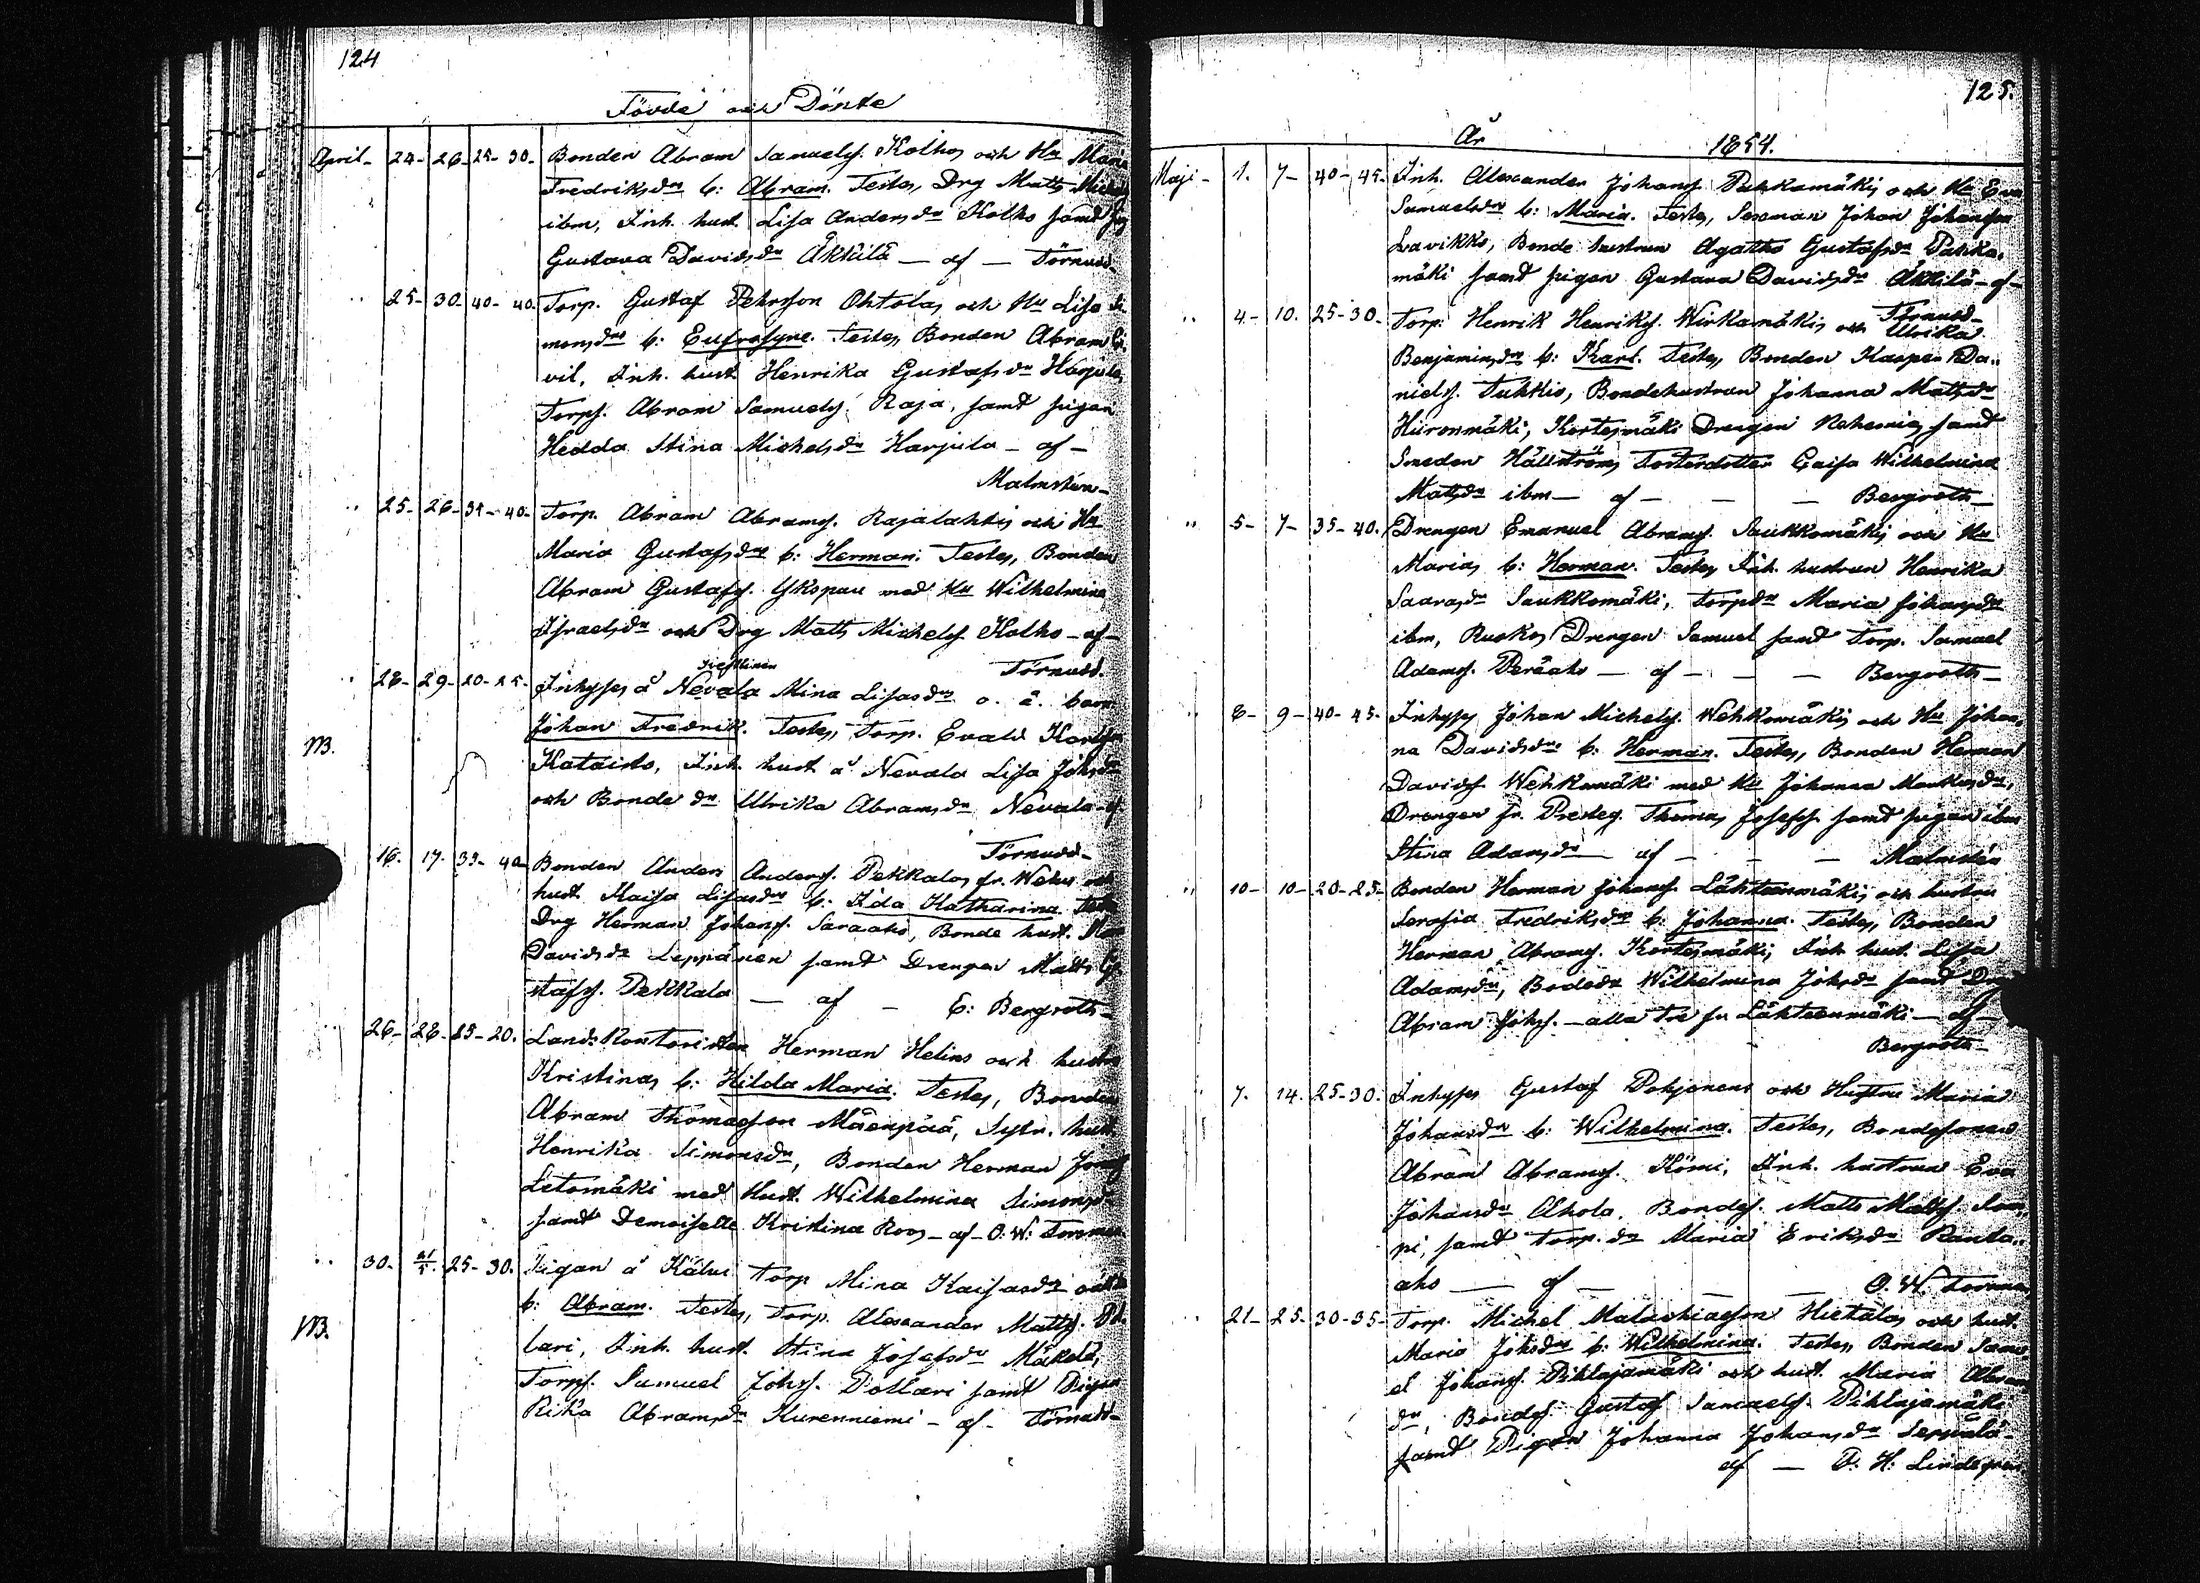 124
Födde och Döpte
April - 24 - 26 - 25 - 30 - Bonden Abram Samuelss. Kolhos och Hu Maria
Fredriksdrs b: Abram. Testes, Drg Matts Michelss
ibm, Inh. hust. Lisa Andersdr Kolho samt
Gustava Davidsdr Äkkilä — af — Törnudd
25 - 30 - 40 - 40. Torp. Gustaf Pehrsson Ohtolas och Hu Lisa Si
monsdrs b: Eufrosyne. Testes, Bonden Abram
vil, Inh. hust. Henrika Gustafsdr Harjula,
Torps. Abram Samuelss. Raja, samt pigan
Hedda Stina Michelsdr Harjula - af -
Malmstén -
25 - 26 - 35 - 40 - Torp. Abram Abramss. Rajalahtis och Hu
Maria Gustafsdrs b: Herman. Testes, Bonden
Abram Gustafss. Ykspuu med Hu Wilhelmina
Israelsdr och Drg Matts Michelss Kolho - af -
Törnudd.
28 - 29 - 20 - 25 - Inhyses å Nevala Mina Lisasdrs o. ä. barn
Johan Fredrik. Testes, Torp. Evald Karlsson
NB.
Kataisto, Inh. hust å Nevala Lisa Johsdr
och Bonde dr Ulrika Abramsdr Nevala - af
Törnudd -
16. 17. 35 - 40 - Bonden Anders Anderss. Pekkalas fr. Wetus och
hust Kaisa Lisasdrs b: Ida Katharina. Testes
Drg Herman Johanss. Saraaho, Bonde hust.
Davidsdr Leppänen samt Drengen Matts Gu
stafss. Pekkala — af — E: Bergroth -
26 - 28 - 15 - 20. Lands Kontoristen Herman Helins och hustru
Kristinas b: Hilda Maria. Testes, Bonden
Abram Thomasson Mäenpää, Sytn. hust.
Henrika Simonsdr, Bonden Herman
Letomäki med Hust. Wilhelmina Simonsdr
samt Demoiselle Kristina Roos - af - O. W. Forsman
30 - 21/5. 25 - 30. Pigan å Kälvi Torp Mina Kaisasdrs oäkta
b: Abram. Testes, Torp. Alexander Mattss.
NB.
lari, Inh. hust. Stina Josefsdr Mäkelä,
Torps. Samuel Johss. Pollari samt Pigan
Rika Abramsdr Kurenniemi - af - Törnudd -
125.
År 1854.
Maji - 1. 7 - 40 - 45. Inh. Alexander Johanss Pahkamäkis och Hu Eva
Samuelsdrs b: Maria. Testes, Sexman Johan Johansson
Lavikko, Bonde hustrun Agatha Gustafsdr Pahka,
mäki samt pigan Gustava Davidsdr Äkkilä - af -
Törnudd -
4 - 10. 25 - 30 - Torp: Henrik Henrikss. Wirkamäkis och Ulrika
Benjaminsdrs b: Karl. Testes, Bonden Kasper Da..
nielss. Tukkio, Bondehustrun Johanna Mattsdr
Hiironmäki, Kortesmäki Drengen Nehemias samt
Smeden Hällströms Fosterdotter Caisa Wilhelmina
Mattsdr ibm — af — — — Bergroth -
5 - 7 - 35 - 40. Drengen Emanuel Abramss. Saukkomäkis och Hu
Marias b: Herman. Testes Inh. hustrun Henrika
Saarasdr Saukkomäki, Torpdr Maria Johansdr
ibm, Ruokos Drengen Samuel samt Torp. Samuel
Adamss. Peräaho — af — — — Bergroth -
8 - 9 - 40 - 45. Inhyses Johan Michelss. Wehkomäkis och Hu Johan,
na Davidsdrs b: Herman. Testes, Bonden Herman
Davidss Wehkomäki med Hu Johanna Markusdr,
Drengen fr. Presteg. Thomas Josefss. samt pigan ibm
Stina Adamsdr — af — — — Malmstén
10 - 10 - 20 - 25 - Bonden Herman Johanss. Lähteenmäkis och hustru
Serafia Fredriksdrs b: Johanna. Testes, Bonden
Herman Abramss. Kortesmäki, Inh. hust. Lisa
Adamsdr, Bodedr Wilhelmina Johsdr samt Drg
Abram Johss. - alla tre fr Lähteenmäki - af -
Bergroth -
7. 14. 25 - 30. Inhyses Gustaf Pohjonens och Hustru Marias
Johansdrs b: Wilhelmina. Testes, Bondesonen
Abram Abramss. Kömi, Inh. hustrun Eva
Johansdr Ahola, Bondes. Matts Mattss.
pi, samt Torp. dr Maria Eriksdr Ranta,,
aho — af — O. W. Forsman
21 - 25 - 30 - 35 - Torp. Michel Malachiasson Hietalas och hust.
Maria Johsdrs b: Wilhelmina. Testes, Bonden Samu
el Johanss. Pihlajamäki och hust. Maria Abrams
dr, Bondes. Gustaf Samuelss. Pihlajamäki
samt Pigan Johanna Johansdr Seppälä -
af — P. H. Lindegren